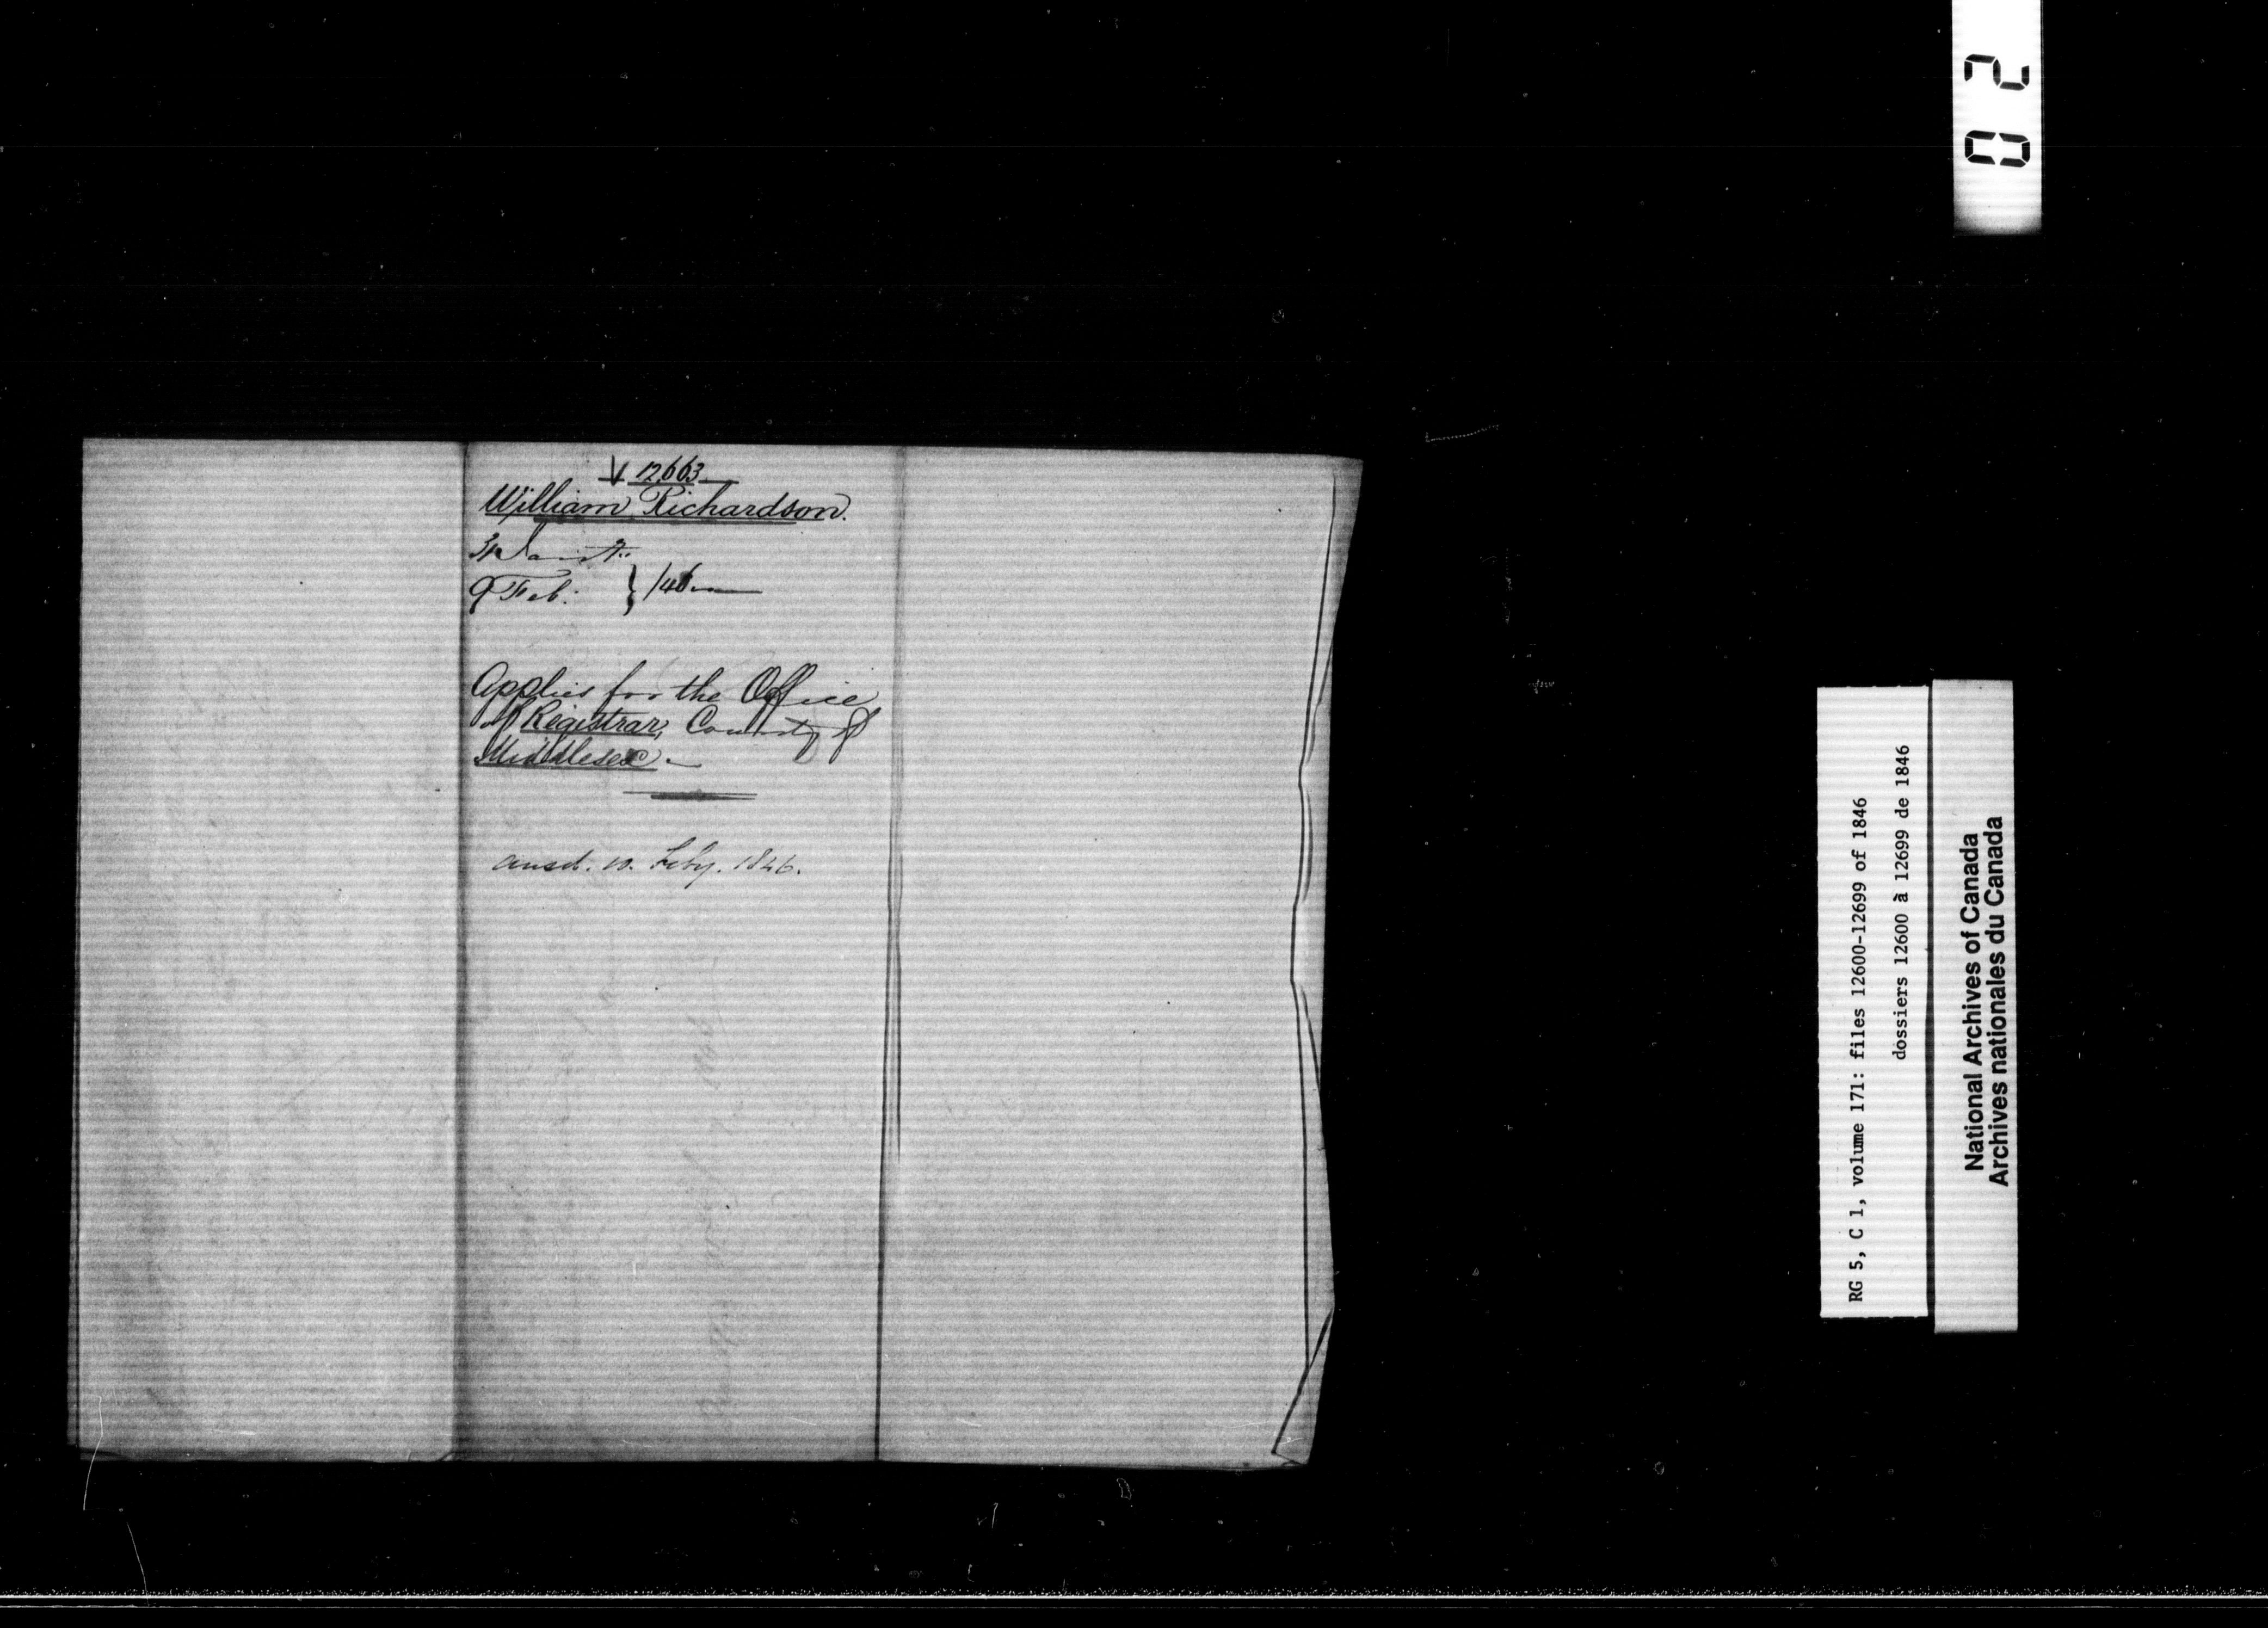 12663
William Richardson.
31 Jany.
9 Feb: } /46
Applies for the Office
of Registrar, County of
Middlesex.
ansd. 10. Feby. 1846.
02
RG 5, C 1, volume 171: files 12600-12699 of 1846
dossiers 12600 à 12699 de 1846
National Archives of Canada
Archives nationales du Canada